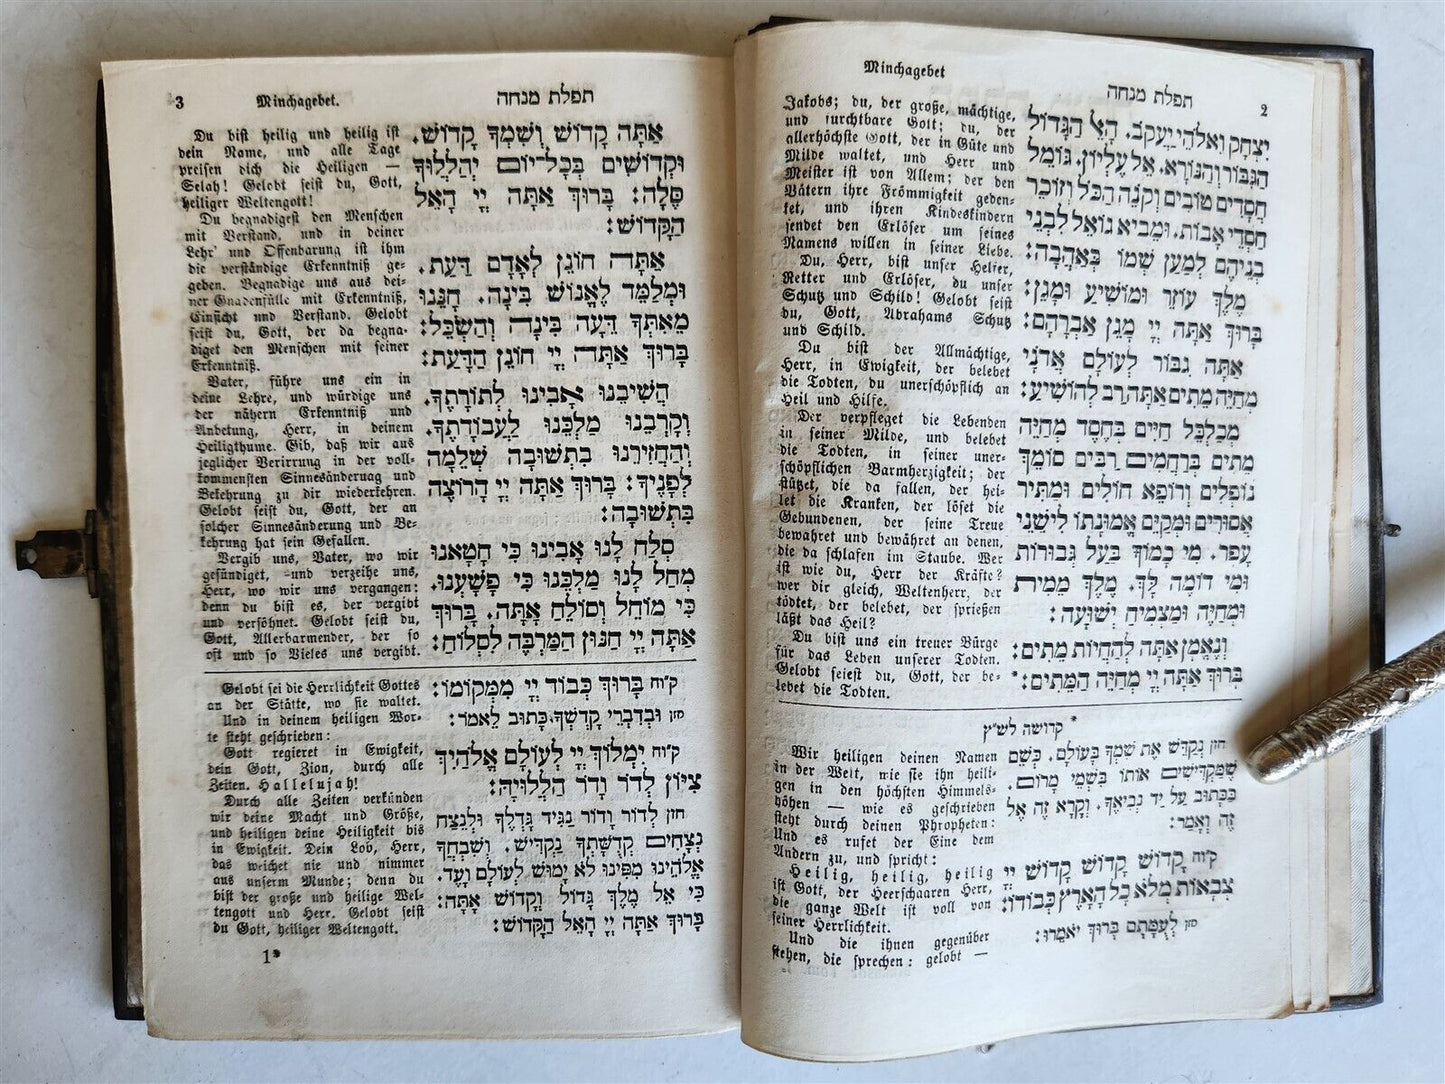 תפלת מנחה
2
Minchagebet
יִצְחָק וֵאלֹהֵי יַעֲקֹב. הָאֵל הַגָּדוֹל
הַגִּבּוֹר וְהַנּוֹרָא. אֵל עֶלְיוֹן. גּוֹמֵל
חֲסָדִים טוֹבִים וְקֹנֵה הַכֹּל וְזוֹכֵר
חַסְדֵי אָבוֹת. וּמֵבִיא גוֹאֵל לִבְנֵי
בְנֵיהֶם לְמַעַן שְׁמוֹ בְּאַהֲבָה:
מֶלֶךְ עוֹזֵר וּמוֹשִׁיעַ וּמָגֵן:
בָּרוּךְ אַתָּה יְיָ מָגֵן אַבְרָהָם:
אַתָּה גִבּוֹר לְעוֹלָם אֲדֹנָי
מְחַיֵּה מֵתִים אַתָּה רַב לְהוֹשִׁיעַ:
מְכַלְכֵּל חַיִּים בְּחֶסֶד מְחַיֵּה
מֵתִים בְּרַחֲמִים רַבִּים סוֹמֵךְ
נוֹפְלִים וְרוֹפֵא חוֹלִים וּמַתִּיר
אֲסוּרִים וּמְקַיֵּם אֱמוּנָתוֹ לִישֵׁנֵי
עָפָר. מִי כָמוֹךָ בַּעַל גְּבוּרוֹת
וּמִי דוֹמֶה לָּךְ. מֶלֶךְ מֵמִית
וּמְחַיֶּה וּמַצְמִיחַ יְשׁוּעָה:
וְנֶאֱמָן אַתָּה לְהַחֲיוֹת מֵתִים:
בָּרוּךְ אַתָּה יְיָ מְחַיֵּה הַמֵּתִים: *
Jakobs; du, der große, mächtige,
und furchtbare Gott; du, der
allerhöchste Gott, der in Güte und
Milde waltet, und Herr und
Meister ist von Allem; der den
Vätern ihre Frömmigkeit geden-
ket, und ihren Kindeskindern
sendet den Erlöser um seines
Namens willen in seiner Liebe.
Du, Herr, bist unser Helfer,
Retter und Erlöser, du unser
Schutz und Schild! Gelobt seist
du, Gott, Abrahams Schutz
und Schild.
Du bist der Allmächtige,
Herr, in Ewigkeit, der belebet
die Todten, du unerschöpflich an
Heil und Hilfe.
Der verpfleget die Lebenden
in seiner Milde, und belebet
die Todten, in seiner uner-
schöpflichen Barmherzigkeit; der
stützet, die da fallen, der hei-
let die Kranken, der löset die
Gebundenen, der seine Treue
bewahret und bewähret an denen,
die da schlafen im Staube. Wer
ist wie du, Herr der Kräfte?
wer dir gleich, Weltenherr, der
tödtet, der belebet, der sprießen
läßt das Heil?
Du bist uns ein treuer Bürge
für das Leben unserer Todten.
Gelobt seiest du, Gott, der be-
lebet die Todten.
* קדושה לש״ץ
חזן נְקַדֵּשׁ אֶת שִׁמְךָ בָּעוֹלָם. כְּשֵׁם
שֶׁמַּקְדִּישִׁים אוֹתוֹ בִּשְׁמֵי מָרוֹם.
כַּכָּתוּב עַל יַד נְבִיאֶךָ. וְקָרָא זֶה אֶל
זֶה וְאָמַר:
קו״ח קָדוֹשׁ קָדוֹשׁ קָדוֹשׁ יְיָ
צְבָאוֹת מְלֹא כָל הָאָרֶץ כְּבוֹדוֹ:
חזן לְעֻמָּתָם בָּרוּךְ יֹאמֵרוּ:
Wir heiligen deinen Namen
in der Welt, wie sie ihn heili-
gen in den höchsten Himmels-
höhen — wie es geschrieben
steht durch deinen Phropheten:
Und es rufet der Eine dem
Andern zu, und spricht:
Heilig, heilig, heilig
ist Gott, der Heerschaaren Herr,
die ganze Welt ist voll von
seiner Herrlichkeit.
Und die ihnen gegenüber
stehen, die sprechen: gelobt —
תפלת מנחה
Minchagebet.
3
אַתָּה קָדוֹשׁ וְשִׁמְךָ קָדוֹשׁ.
וּקְדוֹשִׁים בְּכָל־יוֹם יְהַלְלוּךָ
סֶּלָה: בָּרוּךְ אַתָּה יְיָ הָאֵל
הַקָּדוֹשׁ:
אַתָּה חוֹנֵן לְאָדָם דַּעַת.
וּמְלַמֵּד לֶאֱנוֹשׁ בִּינָה. חָנֵּנוּ
מֵאִתְּךָ דֵּעָה בִּינָה וְהַשְׂכֵּל:
בָּרוּךְ אַתָּה יְיָ חוֹנֵן הַדָּעַת:
הֲשִׁיבֵנוּ אָבִינוּ לְתוֹרָתֶךָ.
וְקָרְבֵנוּ מַלְכֵּנוּ לַעֲבוֹדָתֶךָ.
וְהַחֲזִירֵנוּ בִּתְשׁוּבָה שְׁלֵמָה
לְפָנֶיךָ: בָּרוּךְ אַתָּה יְיָ הָרוֹצֶה
בִּתְשׁוּבָה:
סְלַח לָנוּ אָבִינוּ כִּי חָטָאנוּ
מְחַל לָנוּ מַלְכֵּנוּ כִּי פָשָׁעְנוּ.
כִּי מוֹחֵל וְסוֹלֵחַ אָתָּה. בָּרוּךְ
אַתָּה יְיָ חַנּוּן הַמַּרְבֶּה לִסְלוֹחַ:
Du bist heilig und heilig ist
dein Name, und alle Tage
preisen dich die Heiligen —
Selah! Gelobt seist du, Gott,
heiliger Weltengott!
Du begnadigest den Menschen
mit Verstand, und in deiner
Lehr' und Offenbarung ist ihm
die verständige Erkenntniß ge-
geben. Begnadige uns aus dei-
ner Gnadenfülle mit Erkenntniß,
Einsicht und Verstand. Gelobt
seist du, Gott, der da begna-
diget den Menschen mit seiner
Erkenntniß.
Vater, führe uns ein in
deine Lehre, und würdige uns
der nähern Erkenntniß und
Anbetung, Herr, in deinem
Heiligthume. Gib, daß wir aus
jeglicher Verirrung in der voll-
kommensten Sinnesänderung und
Bekehrung zu dir wiederkehren.
Gelobt seist du, Gott, der an
solcher Sinnesänderung und Be-
kehrung hat sein Gefallen.
Vergib uns, Vater, wo wir
gesündiget, und verzeihe uns,
Herr, wo wir uns vergangen:
denn du bist es, der vergibt
und versöhnet. Gelobt seist du,
Gott, Allerbarmender, der so
oft und so Vieles uns vergibt.
קו״ח בָּרוּךְ כְּבוֹד יְיָ מִמְּקוֹמוֹ:
חזן וּבְדִבְרֵי קָדְשְׁךָ כָּתוּב לֵאמֹר:
קו״ח יִמְלוֹךְ יְיָ לְעוֹלָם אֱלֹהַיִךְ
צִיּוֹן לְדוֹר וָדוֹר הַלְלוּיָהּ:
חזן לְדוֹר וָדוֹר נַגִּיד גָּדְלֶךָ וּלְנֵצַח
נְצָחִים קְדֻשָּׁתְךָ נַקְדִּישׁ. וְשִׁבְחֲךָ
אֱלֹהֵינוּ מִפִּינוּ לֹא יָמוּשׁ לְעוֹלָם וָעֶד.
כִּי אֵל מֶלֶךְ גָּדוֹל וְקָדוֹשׁ אָתָּה:
בָּרוּךְ אַתָּה יְיָ הָאֵל הַקָּדוֹשׁ:
Gelobt sei die Herrlichkeit Gottes
an der Stätte, wo sie waltet.
Und in deinem heiligen Wor-
te steht geschrieben:
Gott regieret in Ewigkeit,
dein Gott, Zion, durch alle
Zeiten. Hallelujah!
Durch alle Zeiten verkünden
wir deine Macht und Größe,
und heiligen deine Heiligkeit bis
in Ewigkeit. Dein Lob, Herr,
das weichet nie und nimmer
aus unserm Munde; denn du
bist der große und heilige Wel-
tengott und Herr. Gelobt seist
du Gott, heiliger Weltengott.
1*